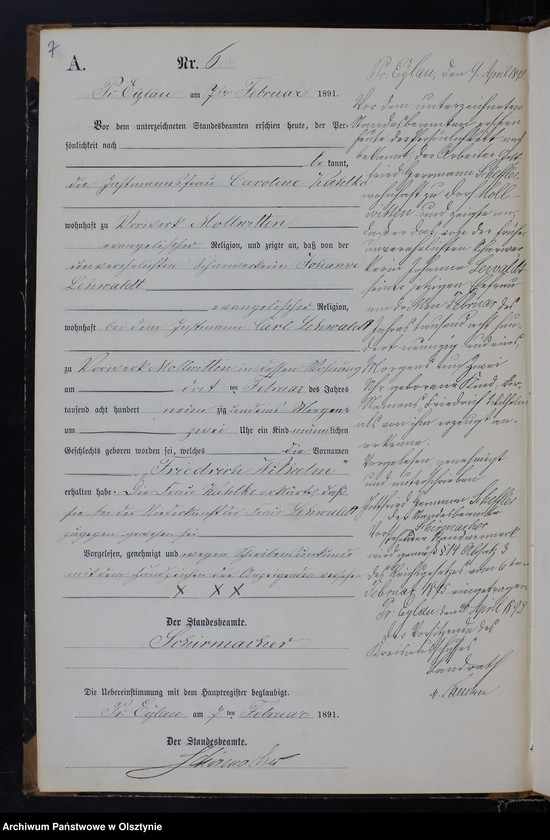 7
A. Nr. 6
Pr. Eylau am 7ten Februar 1891.
Vor dem unterzeichneten Standesbeamten erschien heute, der Per-
sönlichkeit nach
be kannt,
die Instmannsfrau Caroline Kahlke
wohnhaft zu Vorwerk Mollwitten
evangelischer Religion, und zeigte an, daß von der
unverehelichten Johanne
Lehwaldt
evangelischer Religion,
wohnhaft bei dem Instmann Carl Lehwaldt
zu Vorwerk Mollwitten in dessen Wohnung
am drit ten Februar des Jahres
tausend acht hundert neun zig und eins Morgens
um zwei Uhr ein Kind männlichen
Geschlechts geboren worden sei, welches die Vornamen
„Friedrich Wilhelm“
erhalten habe. Die Frau Kahlke erklärte, daß
sie bei der Niederkunft der Lehwaldt
zugegen gewesen sei
Vorgelesen, genehmigt und wegen Schreibensunkunde
mit dem Handzeichen der Anzeigenden versehen
X X X
Der Standesbeamte.
Schirmacher
Die Uebereinstimmung mit dem Hauptregister beglaubigt.
Pr. Eylau am 7ten Februar 1891.
Der Standesbeamte.
Schirmacher
Pr. Eylau, den April
Vor dem unterzeichneten
Standesbeamten erschien
heute der Persönlichkeit nach
bekannt der Arbeiter Gott-
fried Herrmann Scheffler,
wohnhaft zu Dorf Moll-
witten und zeigte an,
daß er das, von der früher
unverehelichten
Johanne Lewaldt
seiner jetzigen Ehefrau
am Februar des
Jahres tausend acht hun-
dert neunzig und eins,
Morgens um zwei
Uhr geborene Kind,
Namens Friedrich Wilhelm
als von ihm erzeugt an-
erkenne.
Vorgelesen genehmigt
und unterschrieben
Gottfried Hermann Scheffler
Der Standesbeamte
Schirmacher
Vorstehender Randvermerk
wird gemäß § 14 Absatz 3
des Reichsgesetzes vom 6ten
Februar 1875 eingetragen
Pr. Eylau den April
Der Vorsitzende des
Kreisausschusses
Landrath
Archiwum Państwowe w Olsztynie